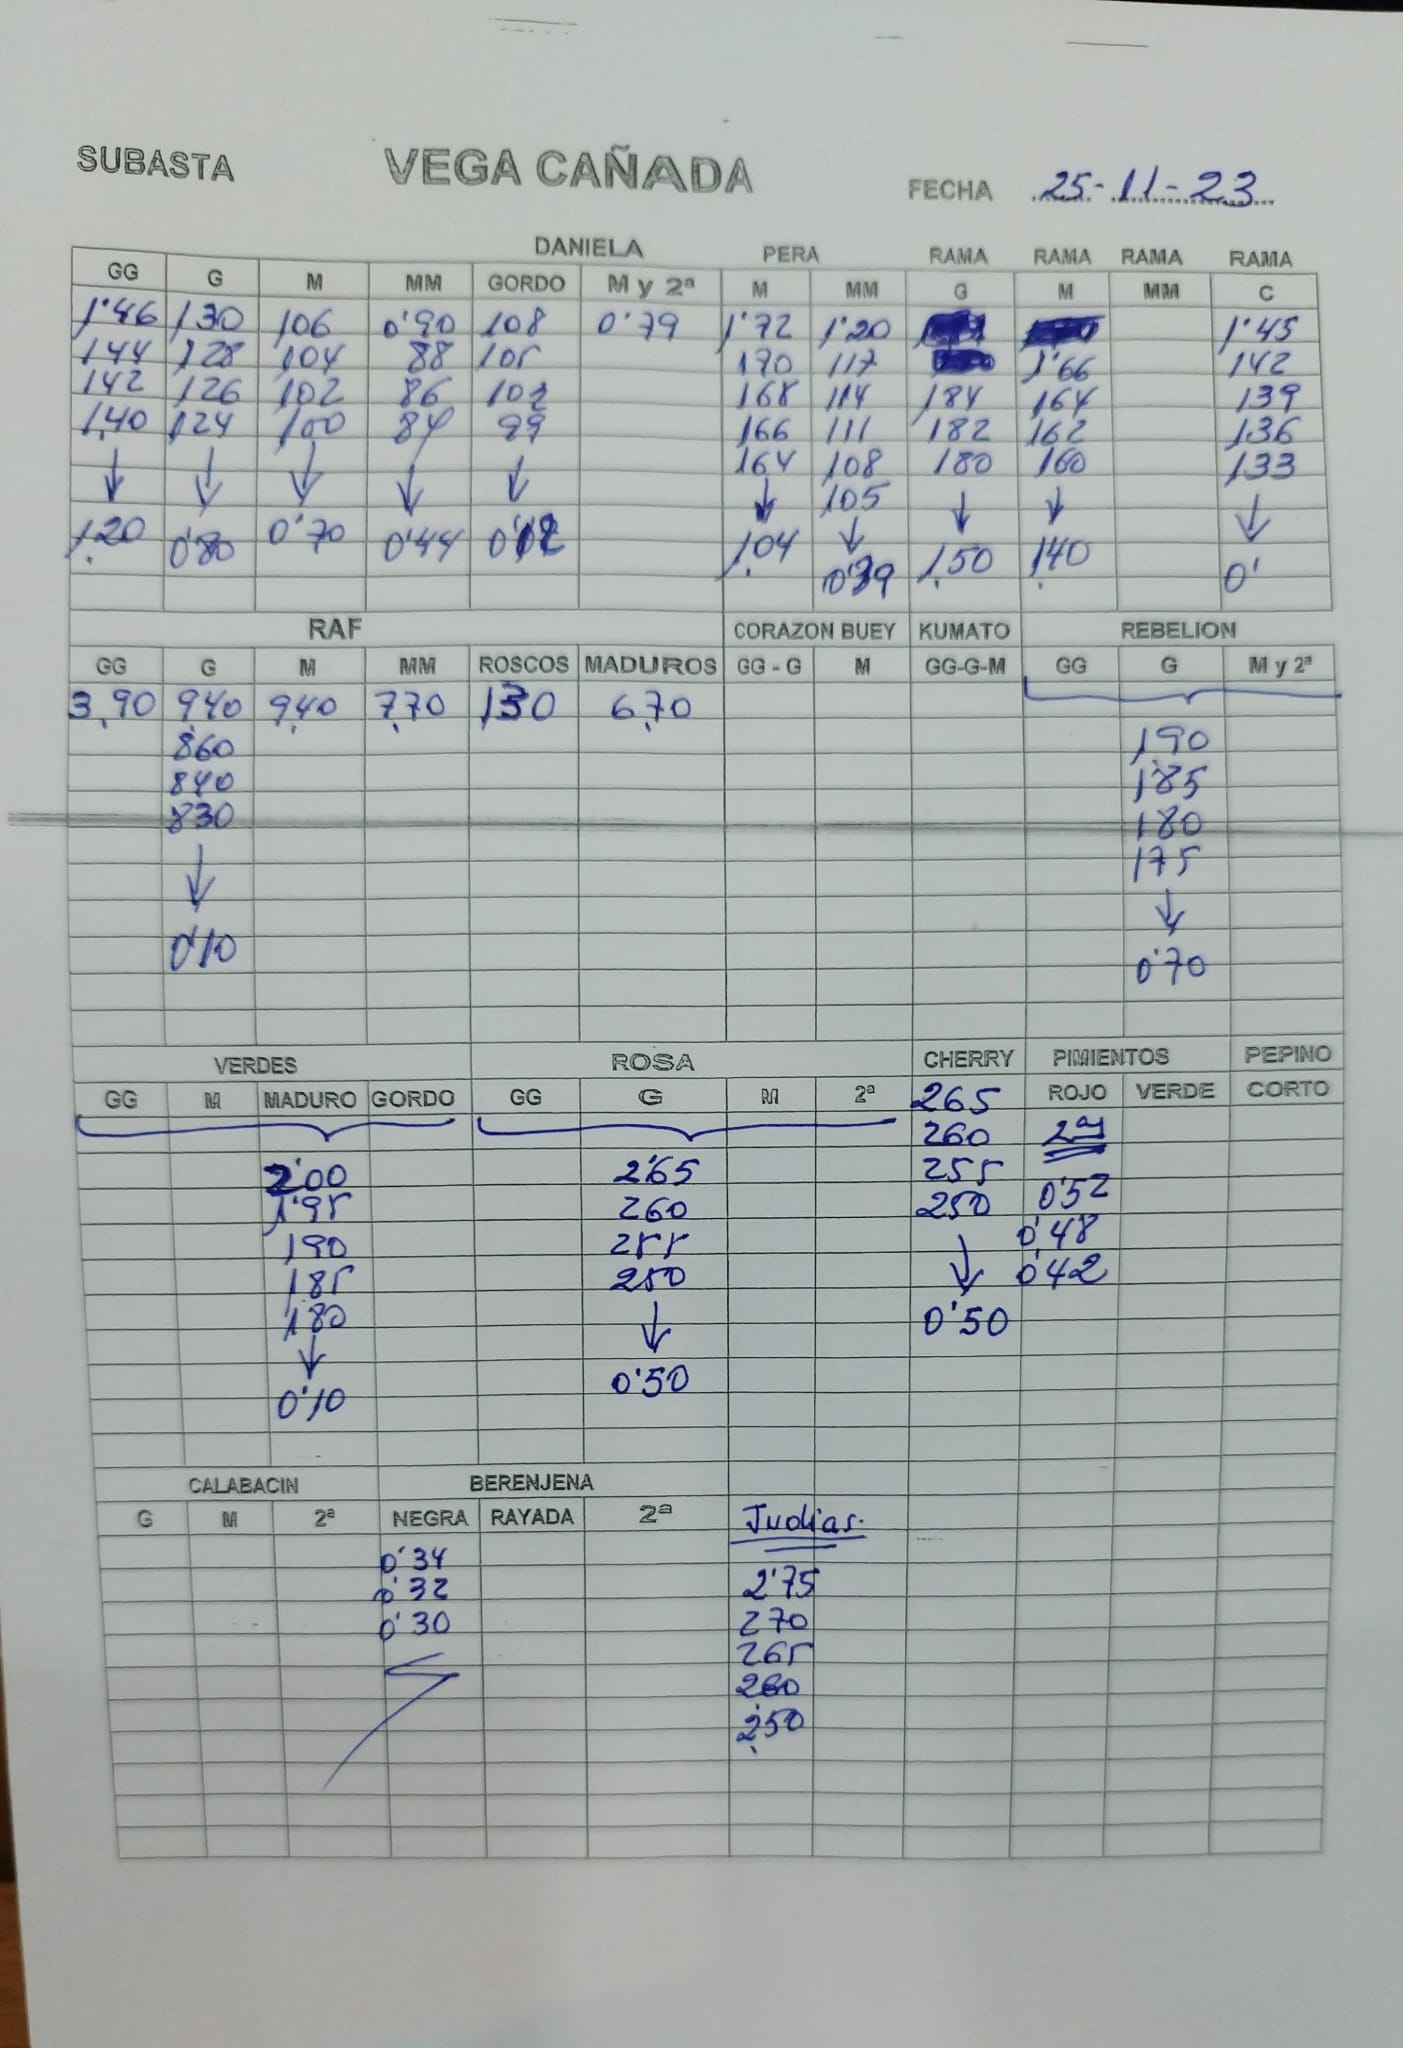 SUBASTA VEGA CAÑADA FECHA 25-11-23
DANIELA PERA RAMA RAMA RAMA RAMA
GG G M MM GORDO M y 2ª M MM G M MM C
1'46 130 106 0'90 108 0'79 1'72 1'20 1'45
144 128 104 88 105 170 117 1'66 142
142 126 102 86 102 168 114 184 164 139
1,40 124 100 84 99 166 111 182 162 136
↓ ↓ ↓ ↓ ↓ 164 108 180 160 133
↓ 105 ↓ ↓ ↓
1.20 0'80 0'70 0'44 1.04 ↓ 1.50 1.40 0'
0'39
RAF CORAZON BUEY KUMATO REBELION
GG G M MM ROSCOS MADUROS GG - G M GG-G-M GG G M y 2ª
3,90 9.40 9.40 7.70 130 6.70
860 190
840 1'85
830 180
175
↓ ↓
0'10 0'70
VERDES ROSA CHERRY PIMIENTOS PEPINO
GG M MADURO GORDO GG G M 2ª 265 ROJO VERDE CORTO
260 2ª
2'00 2'65 255 0'52
1'95 260 250 0'48
190 255 ↓ 0'42
185 250 0'50
180 ↓
↓ 0'50
0'10
CALABACIN BERENJENA
G M 2ª NEGRA RAYADA 2ª Judias.
0'34 2'75
0'32 270
0'30 265
260
2.50